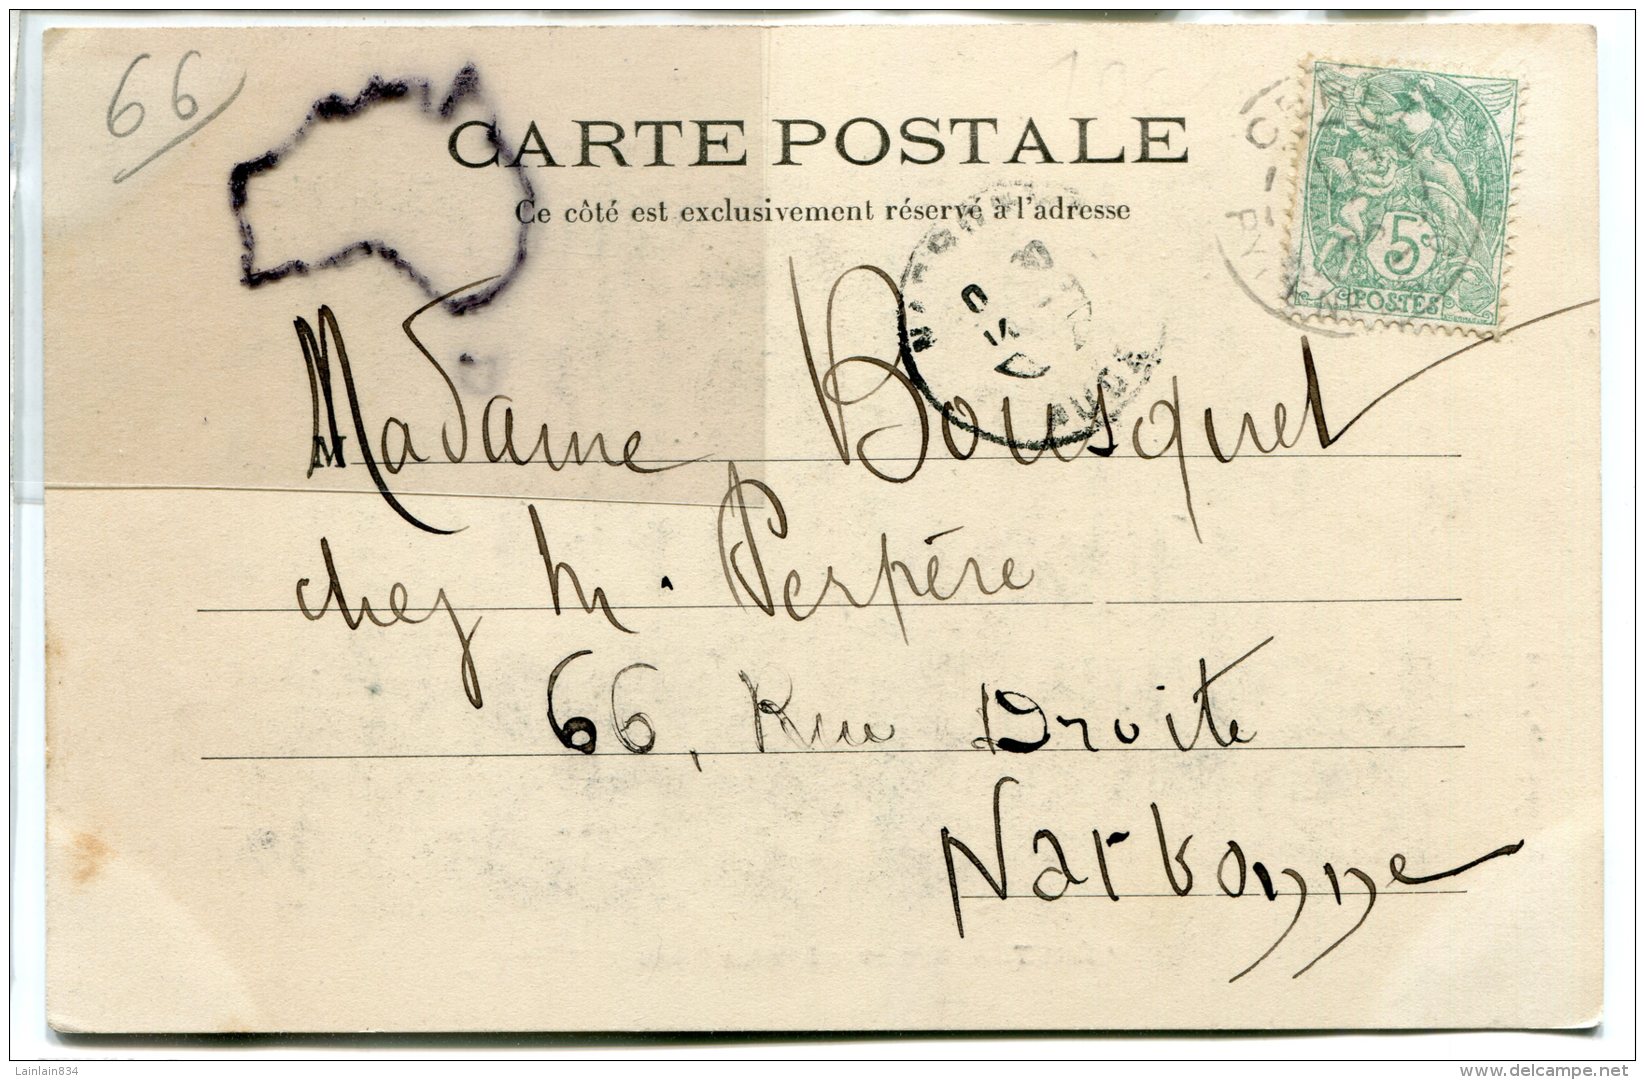 66
CARTE POSTALE
Ce côté est exclusivement réservé à l'adresse
5c
POSTES
M Madame Bousquet
chez M. Perpére
66, Rue Droite
Narbonne
Lainlain834
www.delcampe.net